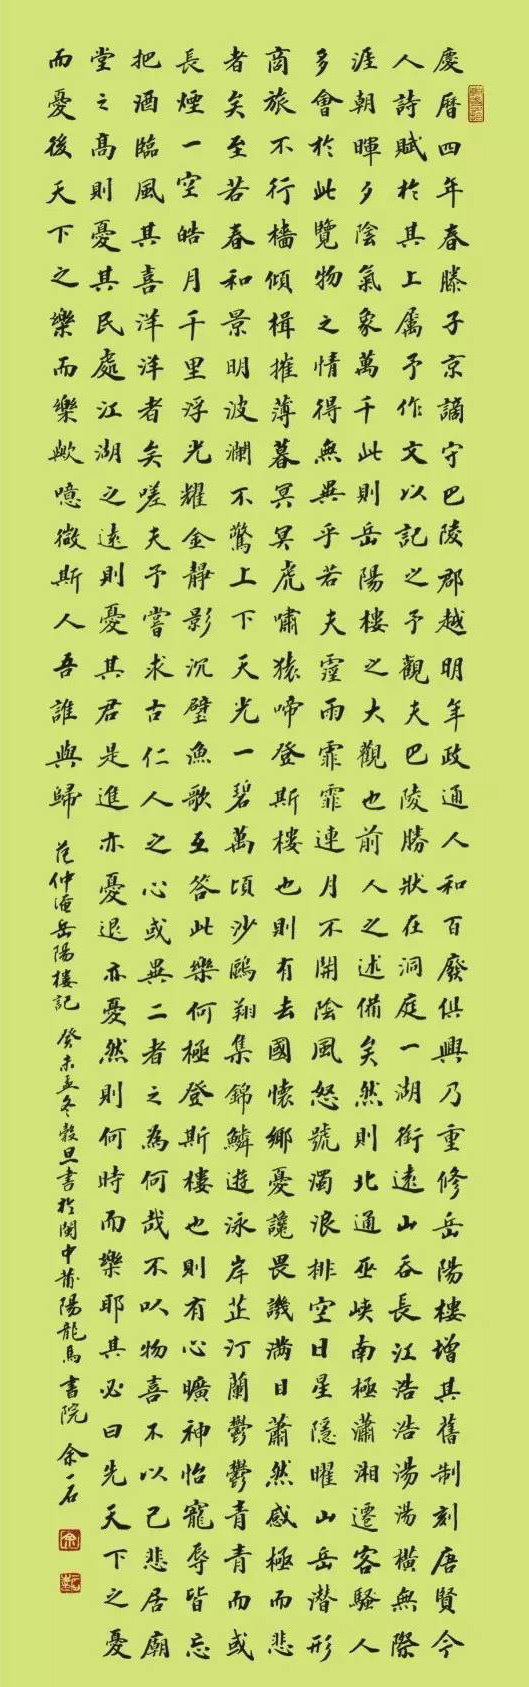 慶曆四年春滕子京謫守巴陵郡越明年政通人和百廢俱興乃重修岳陽樓增其舊制刻唐賢今
人詩賦於其上屬予作文以記之予觀夫巴陵勝狀在洞庭一湖銜遠山吞長江浩浩湯湯橫無際
涯朝暉夕陰氣象萬千此則岳陽樓之大觀也前人之述備矣然則北通巫峽南極瀟湘遷客騷人
多會於此覽物之情得無異乎若夫霪雨霏霏連月不開陰風怒號濁浪排空日星隱曜山岳潛形
商旅不行檣傾楫摧薄暮冥冥虎嘯猿啼登斯樓也則有去國懷鄉憂讒畏譏滿目蕭然感極而悲
者矣至若春和景明波瀾不驚上下天光一碧萬頃沙鷗翔集錦鱗遊泳岸芷汀蘭鬱鬱青青而或
長煙一空皓月千里浮光耀金靜影沉璧漁歌互答此樂何極登斯樓也則有心曠神怡寵辱皆忘
把酒臨風其喜洋洋者矣嗟夫予嘗求古仁人之心或異二者之為何哉不以物喜不以己悲居廟
堂之高則憂其民處江湖之遠則憂其君是進亦憂退亦憂然則何時而樂耶其必曰先天下之憂
而憂後天下之樂而樂歟噫微斯人吾誰與歸 范仲淹岳陽樓記 癸未孟冬穀旦書於閩中莆陽龍馬書院 余一石